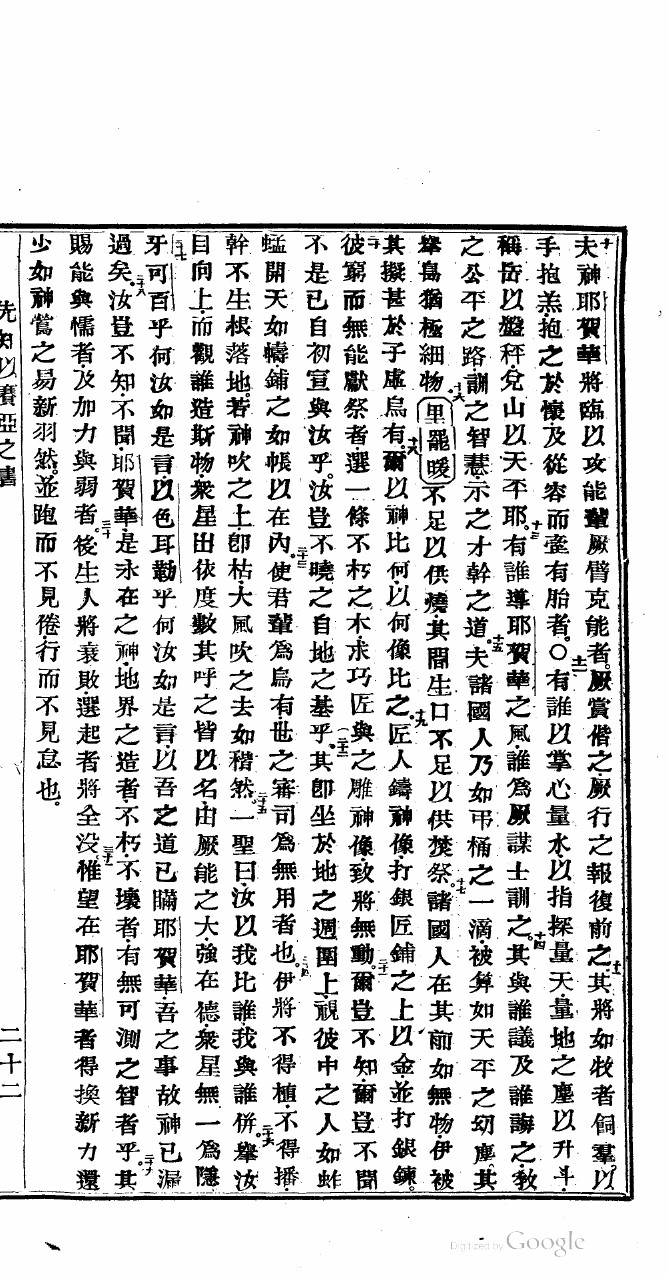 十夫神耶賀華將臨以攻能輩厥臂克能者厥賞偕之厥行之報復前之十一其將如牧者飼羣以
手抱羔抱之於懷及從容而牽有胎者〇十二有誰以掌心量水以指探量天量地之塵以升斗
稱岳以盤秤兌山以天平耶十三有誰導耶賀華之風誰為厥謀士訓之十四其與誰議及誰誨之教
之公平之路訓之智慧示之才幹之道十五夫諸國人乃如弔桶之一滴被算如天平之幼塵其
舉島猶極細物十六里罷暖不足以供燒其間生口不足以供焚祭十七諸國人在其前如無物伊被
其擬甚於子虛烏有十八爾以神比何以何像比之十九匠人鑄神像打銀匠鋪之上以金並打銀鍊
二十彼窮而無能獻祭者選一條不朽之木求巧匠與之雕神像致將無動二十一爾豈不知爾豈不聞
不是已自初宣與汝乎汝豈不曉之自地之基乎二十二其即坐於地之週圍上視彼中之人如蚱
蜢開天如幬鋪之如帳以在內二十三使君輩為烏有世之審司為無用者也二十四伊將不得植不得播
幹不生根落地若神吹之上卽枯大風吹之去如稭然二十五一聖曰汝以我比誰我與誰併二十六舉汝
目向上而觀誰造斯物衆星出依度數其呼之皆以名由厥能之大強在德衆星無一為隱
二十七牙可百乎何汝如是言以色耳勒乎何汝如是言以吾之道已瞞耶賀華吾之事故神已漏
過矣二十八汝豈不知不聞耶賀華是永在之神地界之造者不朽不壞者有無可測之智者乎二十九其
賜能與懦者及加力與弱者三十後生人將衰敗選起者將全没三十一惟望在耶賀華者得換新力還
少如神鷲之易新羽然並跑而不見倦行而不見怠也
先知以賽亞之書
二十二
Digitized by Google